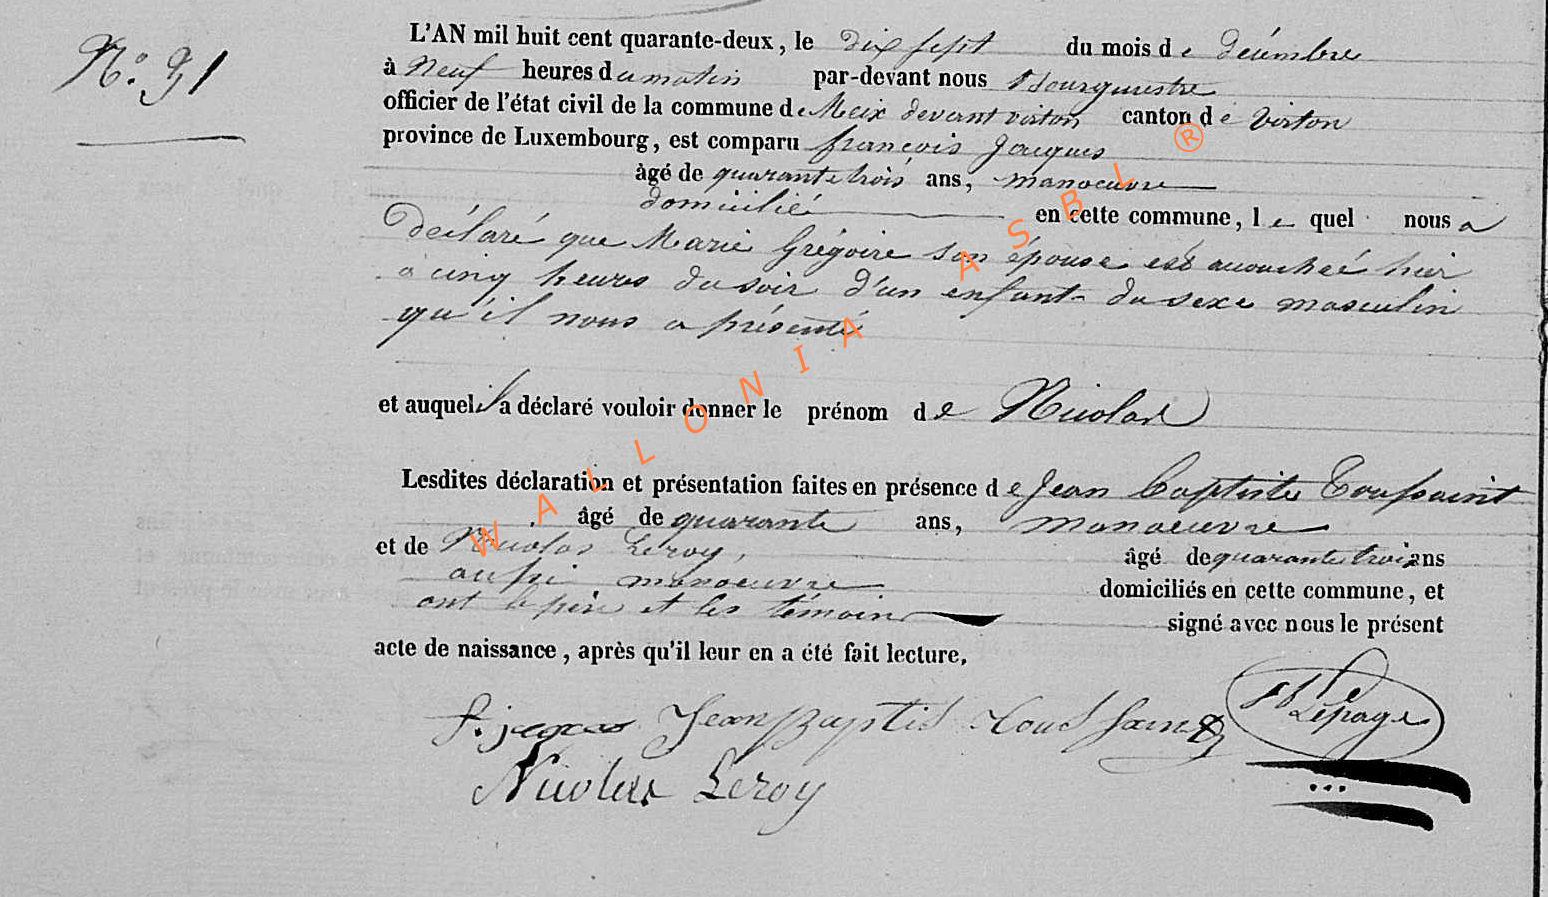 N.º 31
L'AN mil huit cent quarante-deux, le dix sept du mois de décembre
à Neuf heures du matin par-devant nous Bourgmestre
officier de l'état civil de la commune de Meix devant virton canton de Virton
province de Luxembourg, est comparu françois Jacques
âgé de quarante trois ans, manoeuvre
domicilié en cette commune, le quel nous a
déclaré que Marie Grégoire son épouse est accouchée hier
à cinq heures du soir d'un enfant du sexe masculin
qu'il nous a présenté
et auquel il a déclaré vouloir donner le prénom de Nicolas
Lesdites déclaration et présentation faites en présence de Jean Baptiste Toussaint
âgé de quarante ans, manoeuvre
et de Nicolas Leroy, âgé de quarante trois ans
aussi manoeuvre domiciliés en cette commune, et
ont le père et les témoins signé avec nous le présent
acte de naissance, après qu'il leur en a été fait lecture.
f. jacques Jean Baptis Toussaint Lepage
Nicolas Leroy
WALLONIA ASBL ®